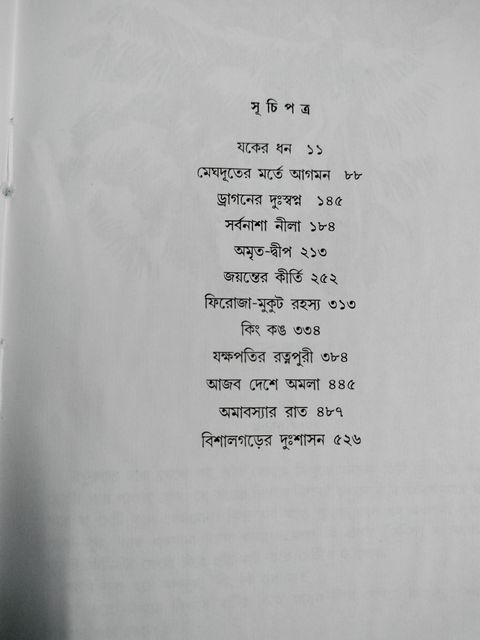 সূ চি প ত্র
যকের ধন ১১
মেঘদূতের মর্তে আগমন ৮৮
ড্রাগনের দুঃস্বপ্ন ১৪৫
সর্বনাশা নীলা ১৮৪
অমৃত-দ্বীপ ২১৩
জয়ন্তের কীর্তি ২৫২
ফিরোজা-মুকুট রহস্য ৩১৩
কিং কঙ ৩৩৪
যক্ষপতির রত্নপুরী ৩৮৪
আজব দেশে অমলা ৪৪৫
অমাবস্যার রাত ৪৮৭
বিশালগড়ের দুঃশাসন ৫২৬